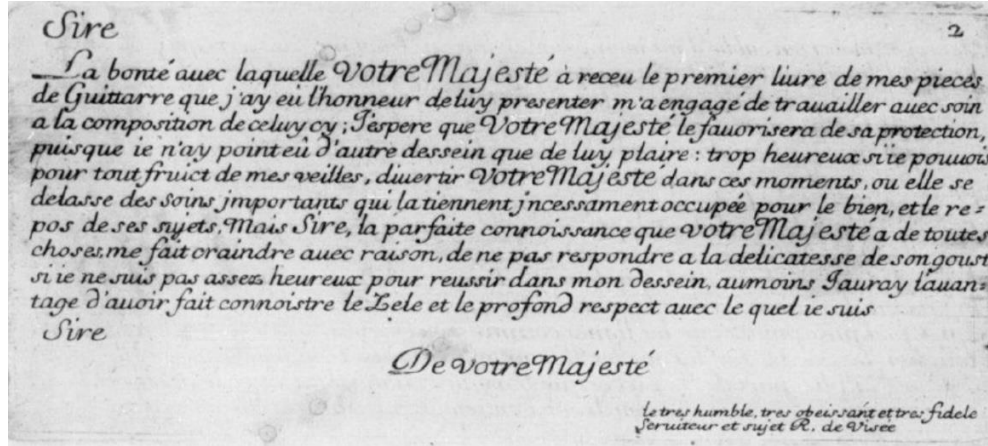 Sire
2
La bonté auec laquelle Votre Majesté à receu le premier liure de mes pieces
de Guittarre que j'ay eû l'honneur de luy presenter m'a engagé de trauailler auec soin
a la composition de celuy cy ; J'espere que Votre Majesté le fauorisera de sa protection,
puisque ie n'ay point eû d'autre dessein que de luy plaire : trop heureux si ie pouuois
pour tout fruict de mes veilles, diuertir Votre Majesté dans ces moments, ou elle se
delasse des soins jmportants qui la tiennent jncessament occupée pour le bien, et le re=
pos de ses sujets, Mais Sire, la parfaite connoissance que votre Majesté a de toutes
choses, me fait craindre auec raison, de ne pas respondre a la delicatesse de son goust
si ie ne suis pas assez heureux pour reussir dans mon dessein, aumoins Jauray lauan=
tage d'auoir fait connoistre le Zele et le profond respect auec le quel ie suis
Sire
De votre Majesté
le tres humble, tres obeissant et tres fidele
seruiteur et sujet R. de Visée